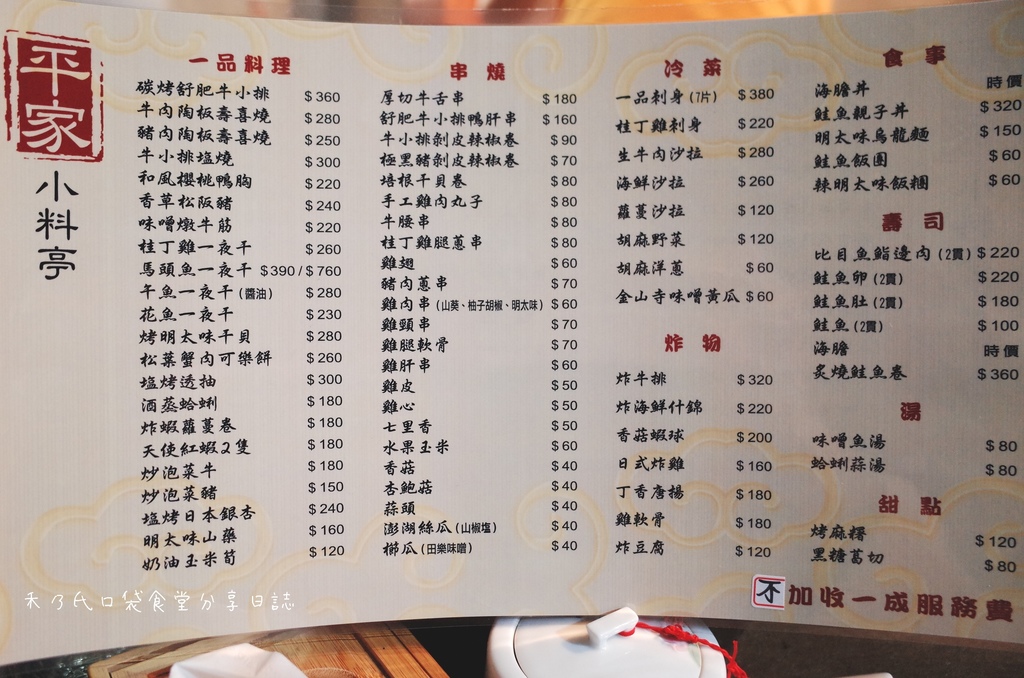 平家
小料亭
一品料理
碳烤舒肥牛小排 $360
牛肉陶板壽喜燒 $280
豬肉陶板壽喜燒 $250
牛小排塩燒 $300
和風櫻桃鴨胸 $220
香草松阪豬 $240
味噌燉牛筋 $220
桂丁雞一夜干 $260
馬頭魚一夜干 $390/$760
午魚一夜干(醬油) $280
花魚一夜干 $230
烤明太味干貝 $280
松葉蟹肉可樂餅 $260
塩烤透抽 $300
酒蒸蛤蜊 $180
炸蝦蘿蔓卷 $180
天使紅蝦2隻 $180
炒泡菜牛 $180
炒泡菜豬 $150
塩烤日本銀杏 $240
明太味山藥 $160
奶油玉米筍 $120
串燒
厚切牛舌串 $180
舒肥牛小排鴨肝串 $160
牛小排剝皮辣椒卷 $90
極黑豬剝皮辣椒卷 $70
培根干貝卷 $80
手工雞肉丸子 $80
牛腰串 $80
桂丁雞腿蔥串 $80
雞翅 $60
豬肉蔥串 $70
雞肉串(山葵、柚子胡椒、明太味) $60
雞頸串 $70
雞腿軟骨 $70
雞肝串 $60
雞皮 $50
雞心 $50
七里香 $50
水果玉米 $60
香菇 $40
杏鮑菇 $40
蒜頭 $40
澎湖絲瓜(山椒塩) $40
櫛瓜(田樂味噌) $40
冷菜
一品刺身(7片) $380
桂丁雞刺身 $220
生牛肉沙拉 $280
海鮮沙拉 $260
蘿蔓沙拉 $120
胡麻野菜 $120
胡麻洋蔥 $60
金山寺味噌黃瓜 $60
炸物
炸牛排 $320
炸海鮮什錦 $220
香菇蝦球 $200
日式炸雞 $160
丁香唐揚 $180
雞軟骨 $180
炸豆腐 $120
食事
海膽丼 時價
鮭魚親子丼 $320
明太味烏龍麵 $150
鮭魚飯團 $60
辣明太味飯糰 $60
壽司
比目魚鮨邊肉(2貫) $220
鮭魚卵(2貫) $220
鮭魚肚(2貫) $180
鮭魚(2貫) $100
海膽 時價
炙燒鮭魚卷 $360
湯
味噌魚湯 $80
蛤蜊蒜湯 $80
甜點
烤麻糬 $120
黑糖葛切 $80
不加收一成服務費
禾乃氏口袋食堂分享日誌